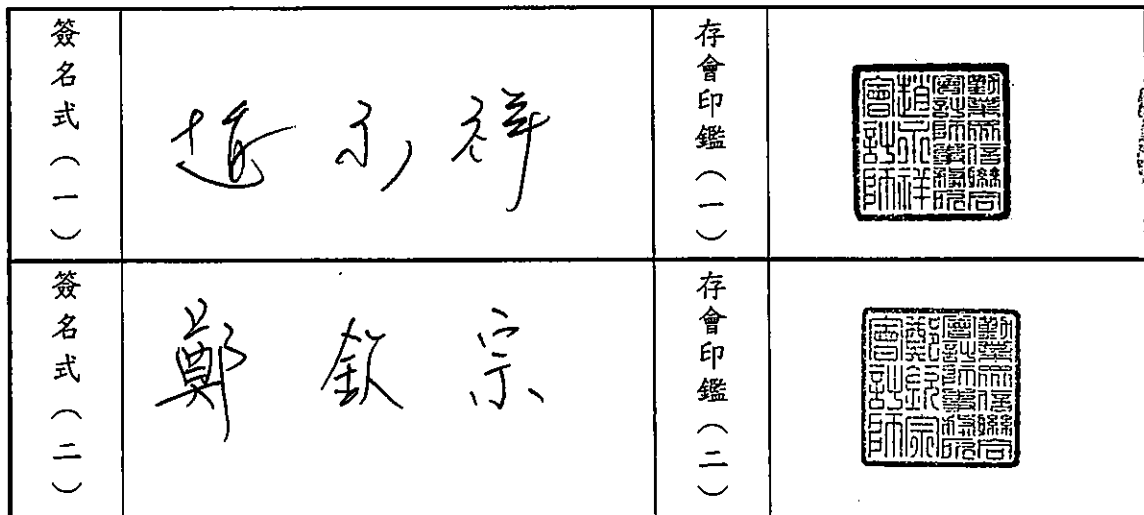 簽名式（一）
趙永祥
存會印鑑（一）
勤業眾信聯合
會計師事務所
趙永祥
會計師
簽名式（二）
鄭欽宗
存會印鑑（二）
勤業眾信聯合
會計師事務所
鄭欽宗
會計師